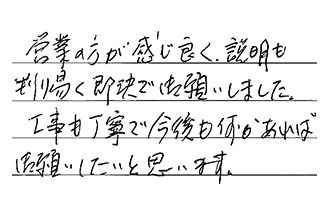 営業の方が感じ良く、説明も
判り易く即決で御願いしました。
工事も丁寧で今後も何かあれば
御願いしたいと思います。